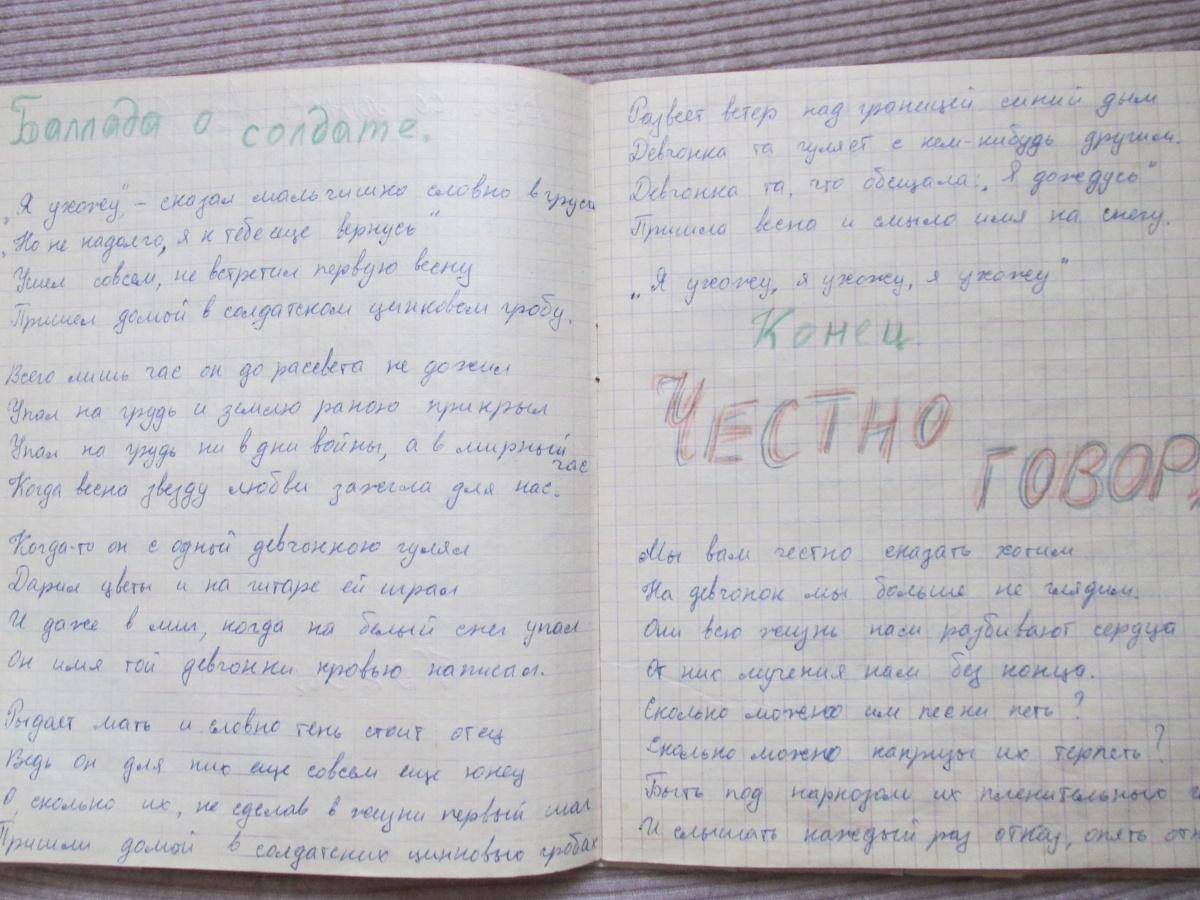 Баллада о солдате.
„Я ухожу", – сказал мальчишка словно в грусть
„Но не надолго, я к тебе еще вернусь"
Ушел совсем, не встретил первую весну
Пришел домой в солдатском цинковом гробу.
Всего лишь час он до рассвета не дожил
Упал на грудь и землю раною прикрыл
Упал на грудь ни в дни войны, а в мирный час
Когда весна звезду любви зажгла для нас.
Когда-то он с одной девчонкою гулял
Дарил цветы и на гитаре ей играл
И даже в миг, когда на белый снег упал
Он имя той девчонки кровью написал.
Рыдает мать и словно тень стоит отец
Ведь он для них еще совсем еще юнец
О, сколько их, не сделав в жизни первый шаг
Пришли домой в солдатских цинковых гробах
Развеет ветер над границей синий дым
Девчонка та гуляет с кем-нибудь другим.
Девчонка та, что обещала: „Я дождусь"
Пришла весна и смыло имя на снегу.
„Я ухожу, я ухожу, я ухожу"
Конец
ЧЕСТНО
ГОВОРЯ
Мы вам честно сказать хотим
На девчонок мы больше не глядим.
Они всю жизнь нам разбивают сердца
От них мучения нам без конца.
Сколько можно им песни петь?
Сколько можно капризы их терпеть?
Быть под наркозом их пленительного
И слышать каждый раз отказ, опять